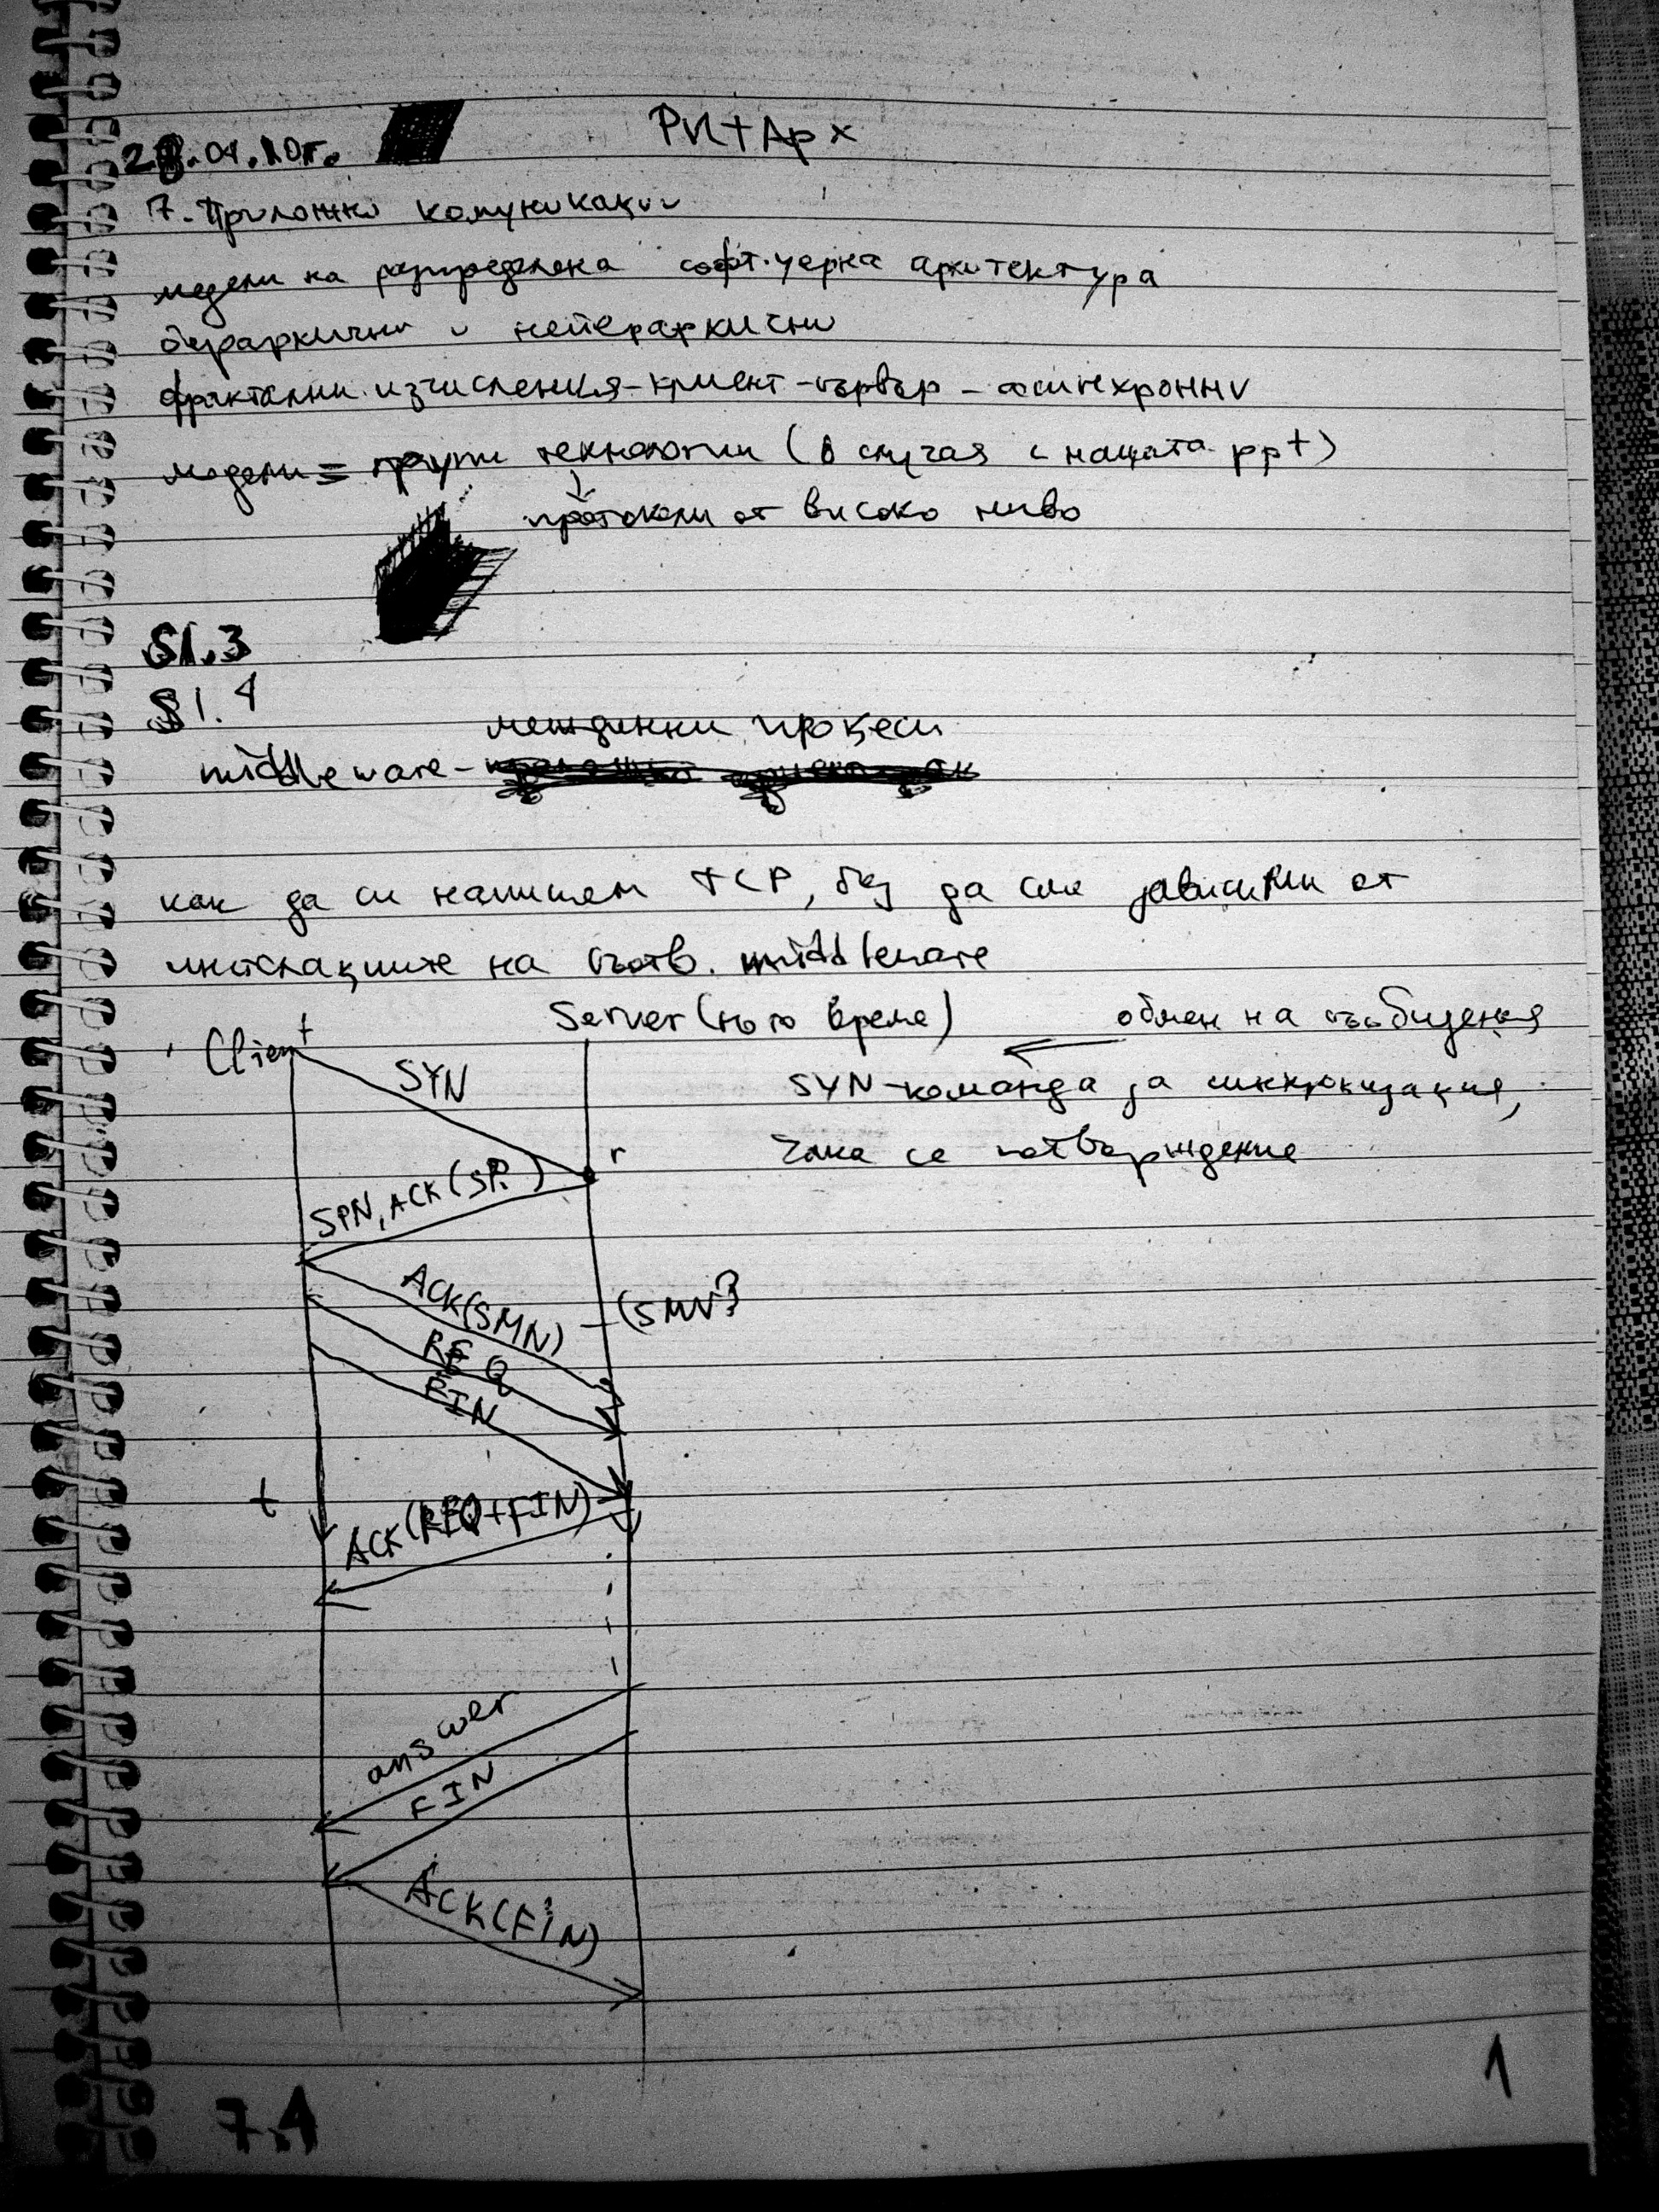 28.04.10г.
РИТАрх
7. Приложни комуникации
модели на разпределена софтуерна архитектура
йерархични и нейерархични
фрактални изчисления - клиент - сървър - асинхронни
модели = групи технологии (в случая с нашата ppt)
протоколи от високо ниво
Sl.3
Sl.4
междинни процеси
middleware -
как да си напишем TCP, без да сме зависими от
инсталациите на съотв. middleware
Client
Server (него време)
обмен на съобщения
SYN
SYN - команда за синхронизация,
чака се потвърждение
r
SPN, ACK(SP.)
ACK(SMN) - (SMN?)
REQ
FIN
t
ACK(REQ+FIN)
answer
FIN
ACK(FIN)
7.1
1